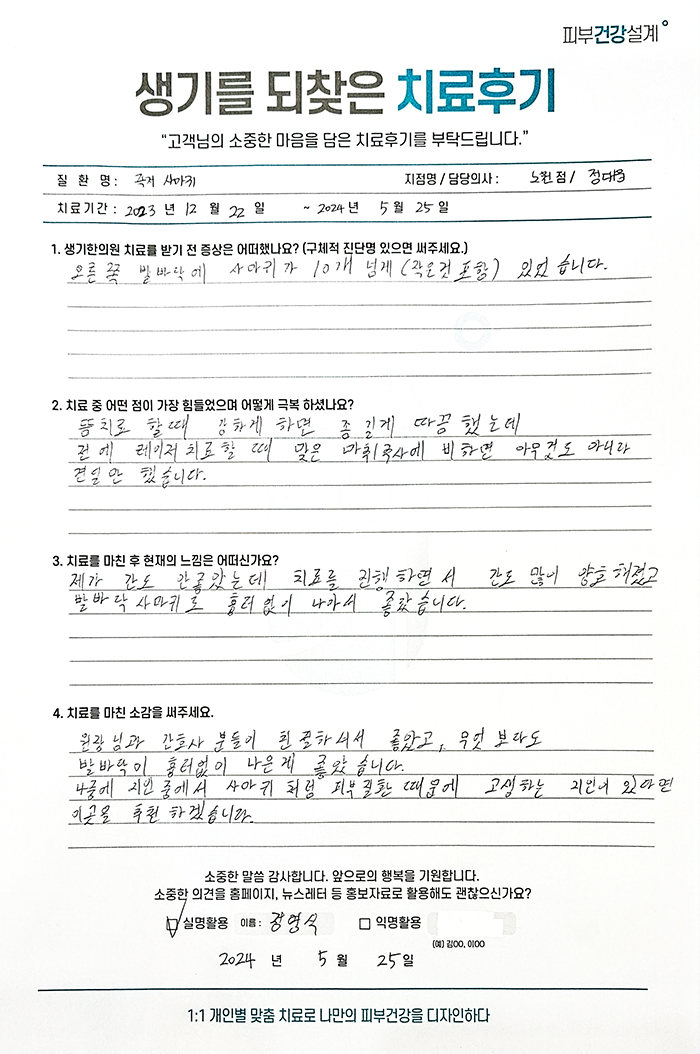 피부건강설계
생기를 되찾은 치료후기
“고객님의 소중한 마음을 담은 치료후기를 부탁드립니다.”
질 환 명 : 족저 사마귀 지점명 / 담당의사 : 노원점 /
치료기간 : 2023 년 12 월 22 일 ~ 2024년 5 월 25 일
1. 생기한의원 치료를 받기 전 증상은 어떠했나요? (구체적 진단명 있으면 써주세요.)
오른쪽 발바닥에 사마귀가 10개 넘게 (작은것 포함) 있었습니다.
2. 치료 중 어떤 점이 가장 힘들었으며 어떻게 극복 하셨나요?
뜸치료 할때 강하게 하면 좀 길게 따끔했는데
전에 레이저치료할 때 맞은 마취주사에 비하면 아무것도 아니라
견딜만 했습니다.
3. 치료를 마친 후 현재의 느낌은 어떠신가요?
제가 간도 안좋았는데 치료를 진행하면서 간도 많이 양호해졌고
발바닥사마귀로 흉터없이 나아서 좋았습니다.
4. 치료를 마친 소감을 써주세요.
원장님과 간호사 분들이 친절하셔서 좋았고, 무엇보다도
발바닥이 흉터없이 나은게 좋았습니다.
나중에 지인중에서 사마귀처럼 피부질환 때문에 고생하는 지인이 있다면
이곳을 추천하겠습니다.
소중한 말씀 감사합니다. 앞으로의 행복을 기원합니다.
소중한 의견을 홈페이지, 뉴스레터 등 홍보자료로 활용해도 괜찮으신가요?
실명활용 이름 : 강영식 익명활용
(예) 김00, 이00
2024 년 5 월 25일
1:1 개인별 맞춤 치료로 나만의 피부건강을 디자인하다